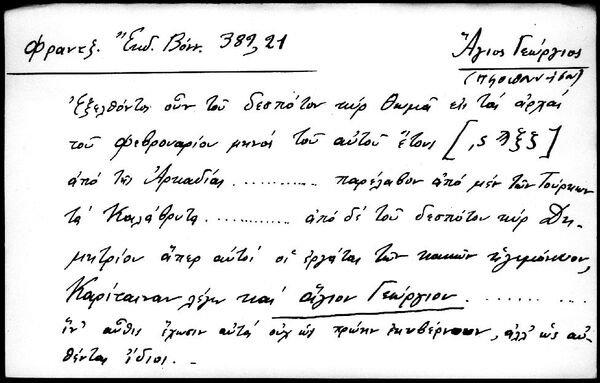 Φραντζ. Ἔκδ. Βόνν. 389,21
Ἅγιος Γεώργιος
Ἐξελθόντος οὖν τοῦ δεσπότου κὺρ Θωμᾶ εἰς τὰς ἀρχὰς
τοῦ Φεβρουαρίου μηνὸς τοῦ αὐτοῦ ἔτους [,ςϡξζ]
ἀπὸ τῆς Ἀρκαδίας ............ παρέλαβον ἀπὸ μὲν τῶν Τούρκων
τὰ Καλάβρυτα ............ ἀπὸ δὲ τοῦ δεσπότου κὺρ Δη-
μητρίου ἅπερ αὐτοὶ οἱ ἐργάται τῶν κακῶν ἡγεμόνευον,
Καρίταιναν λέγω καὶ ἅγιον Γεώργιον .........
ἵν' αὖθις ἔχωσιν αὐτὰ οὐχ ὡς πρώην ἐκυβέρνουν, ἀλλ' ὡς αὐ-
θένται ἴδιοι. . _